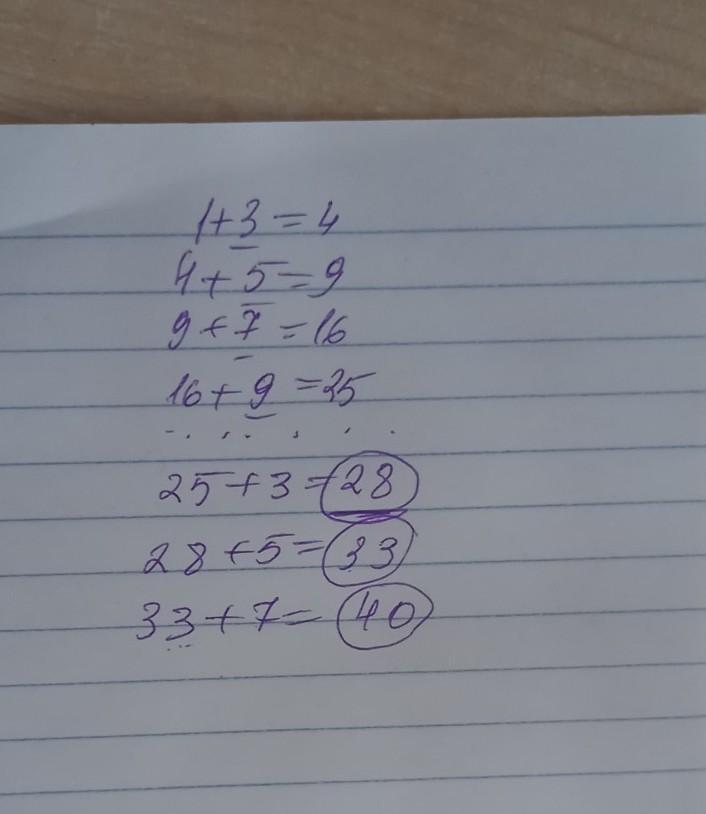 1+3=4
4+5=9
9+7=16
16+9=25
.......
25+3=28
28+5=33
33+7=40